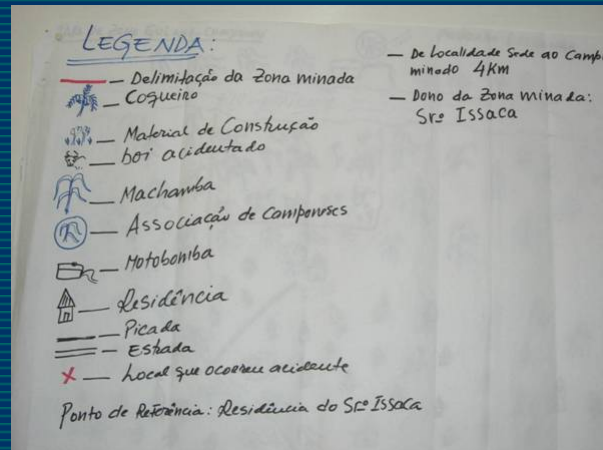 LEGENDA:
— Delimitação da Zona minada
— Coqueiro
— Material de Construção
— boi acidentado
— Machamba
— Associação de Camponeses
— Motobomba
— Residência
— Picada
— Estrada
— Local que ocorreu acidente
Ponto de Referência: Residência do Srº Issaca
— De Localidade Sede ao Campo
minado 4Km
— Dono da Zona minada:
Srº Issaca